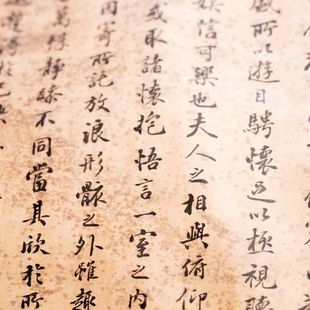 盛所以遊目騁懷足以極視聽
娛信可樂也夫人之相與俯仰
或取諸懷抱悟言一室之內
因寄所託放浪形骸之外雖趣
萬殊靜躁不同當其欣於所